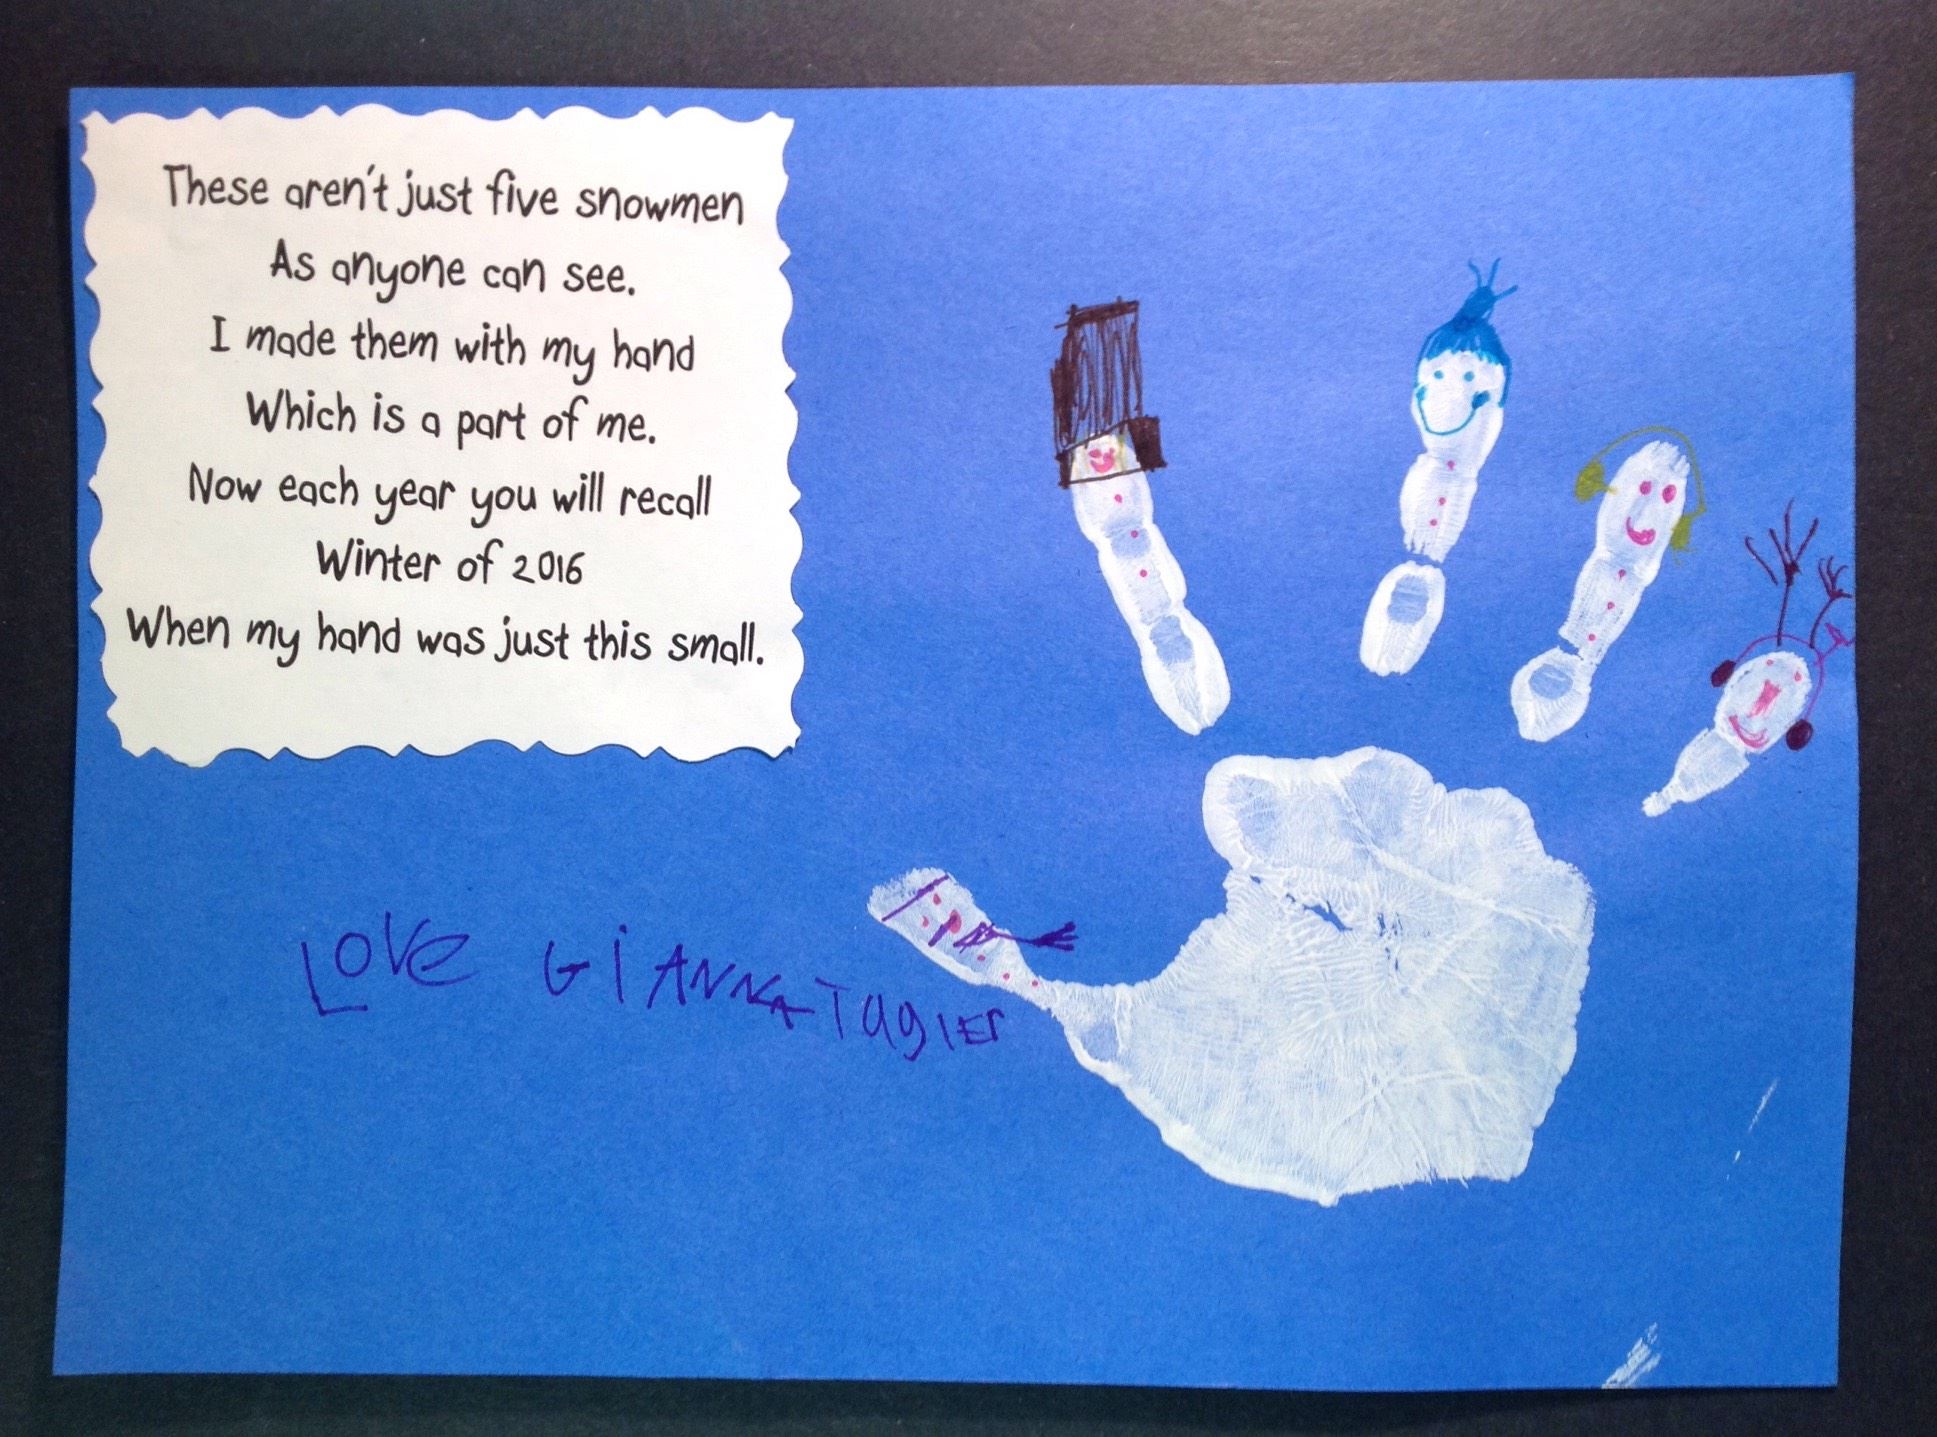 These aren't just five snowmen
As anyone can see.
I made them with my hand
Which is a part of me.
Now each year you will recall
Winter of 2016
When my hand was just this small.
LOVe GiANNATugiER